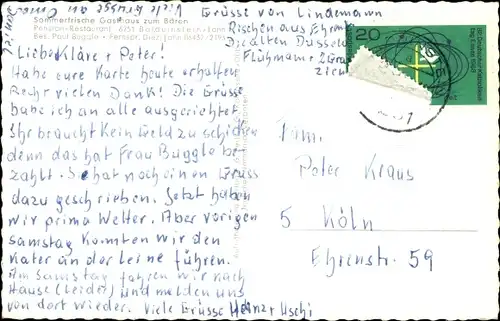 Sommerfrische Gasthaus zum Bären
Pension-Restaurant 6251 Balduinstein-Lahn
Bes. Paul Buggle · Fernspr. Diez/Lahn (06432)
Liebe Kläre + Peter!
Habe eure Karte heute erhalten
Recht vielen Dank! Die Grüsse
habe ich an alle ausgerichtet
Ihr braucht kein Geld zu schicken
denn das hat Frau Buggle be-
zahlt. Sie hat noch einen Gruss
dazu geschrieben. Jetzt haben
wir prima Wetter. Aber vorigen
samstag konnten wir den
Kater an der Leine führen.
Am Samstag fahren wir nach
Hause (leider) und melden uns
von dort wieder. Viele Grüsse Heinz + Uschi
Grüsse von Lindemann
Rischen aus
Die alten Düssel
Flühmann
20
Fam.
Peter Kraus
5 Köln
Ehrenstr. 59